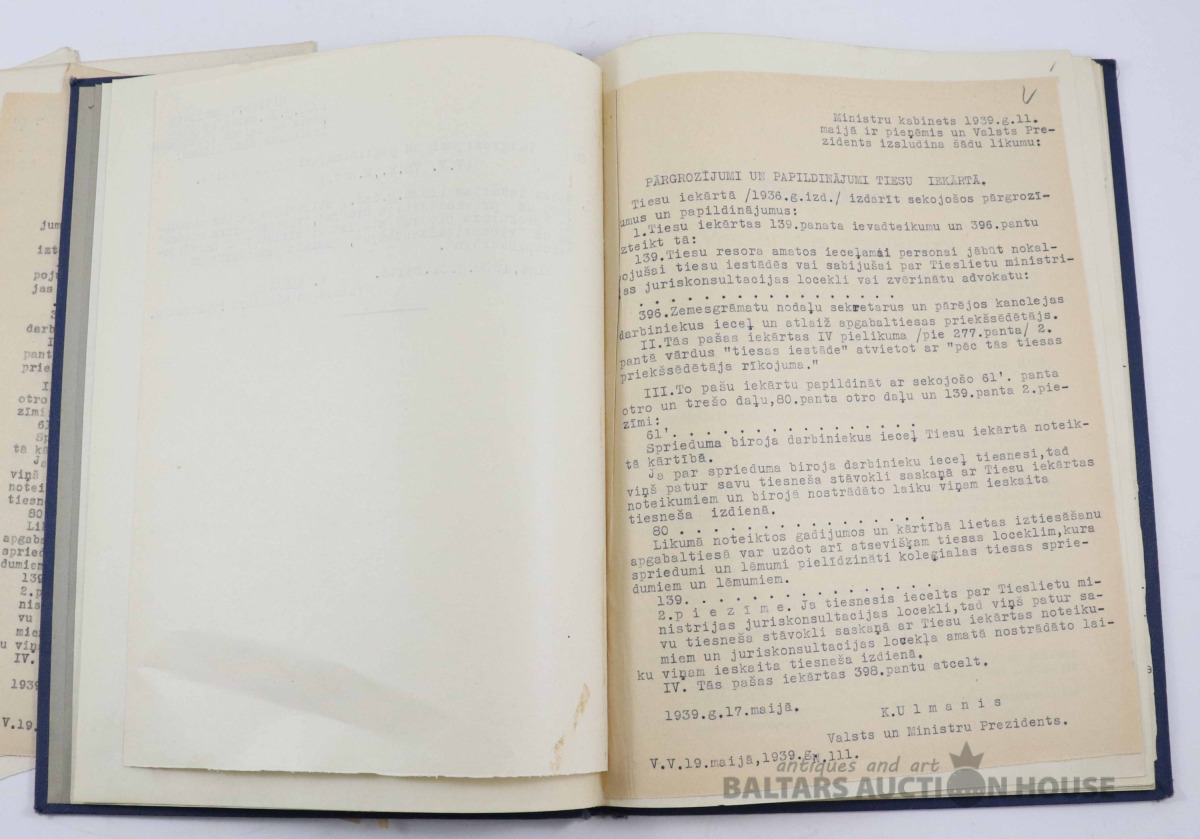 Ministru kabinets 1939.g.11.
maijā ir pieņēmis un Valsts Pre-
zidents izsludina šādu likumu:
PĀRGROZĪJUMI UN PAPILDINĀJUMI TIESU IEKĀRTĀ.
Tiesu iekārtā /1936.g.izd./ izdarīt sekojošos pārgrozī-
umus un papildinājumus:
1.Tiesu iekārtas 139.panata ievadteikumu un 396.pantu
zteikt tā:
139.Tiesu resora amatos ieceļamai personai jābūt nokal-
ojušai tiesu iestādēs vai sabijušai par Tieslietu ministri-
as juriskonsultacijas locekli vai zvērinātu advokatu:
. . . . . . . . . . . . . . . . .
396.Zemesgrāmatu nodaļu sekretarus un pārējos kanclejas
darbiniekus ieceļ un atlaiž apgabaltiesas priekšsēdētājs.
II.Tās pašas iekārtas IV pielikuma /pie 277.panta/ 2.
pantā vārdus "tiesas iestāde" atvietot ar "pēc tās tiesas
priekšsēdētāja rīkojuma."
III.To pašu iekārtu papildināt ar sekojošo 61'. panta
otro un trešo daļu,80.panta otro daļu un 139.panta 2.pie-
zīmi:
61'. . . . . . . . . . . . . . . .
Sprieduma biroja darbiniekus ieceļ Tiesu iekārtā noteik-
tā kārtībā.
Ja par sprieduma biroja darbinieku ieceļ tiesnesi,tad
viņš patur savu tiesneša stāvokli saskaņā ar Tiesu iekārtas
noteikumiem un birojā nostrādāto laiku viņam ieskaita
tiesneša izdienā.
80 . . . . . . . . . . . . . . . .
Likumā noteiktos gadījumos un kārtībā lietas iztiesāšanu
apgabaltiesā var uzdot arī atsevišķam tiesas loceklim,kura
spriedumi un lēmumi pielīdzināti kolegialas tiesas sprie-
dumiem un lēmumiem.
139. . . . . . . . . . . . . . . .
2.p i e z ī m e. Ja tiesnesis iecelts par Tieslietu mi-
nistrijas juriskonsultacijas locekli,tad viņš patur sa-
vu tiesneša stāvokli saskaņā ar Tiesu iekārtas noteiku-
miem un juriskonsultacijas locekļa amatā nostrādāto lai-
ku viņam ieskaita tiesneša izdienā.
IV. Tās pašas iekārtas 398.pantu atcelt.
1939.g.17.maijā.
K.U l m a n i s
Valsts un Ministru Prezidents.
V.V.19.maijā,1939.g.N.111.
antiques and art
BALTARS AUCTION HOUSE